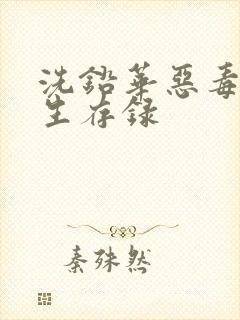 洗铅华恶毒
生存录
秦殊然